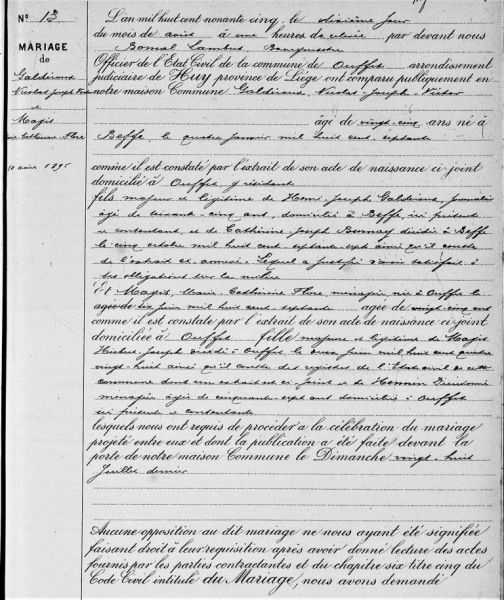 N° 13
MARIAGE
de
Galderoux
Nicolas Joseph Victor
&
Magis
Marie Catherine Flore
10 août 1895
L'an mil huit cent nonante cinq, le dixième jour
du mois de août à une heures de relevée par devant nous
Bomal Lambert, Bourgmestre
Officier de l'Etat Civil de la commune de Ouffet arrondissement
judiciaire de Huy province de Liége ont comparu publiquement en
notre maison Commune Galderoux, Nicolas Joseph Victor
âgé de vingt-cinq ans né à
Beffe, le quatre janvier mil huit cent septante
comme il est constaté par l'extrait de son acte de naissance ci-joint
domicilié à Ouffet, y résidant
fils majeur et légitime de Henri Joseph Galderoux, journalier
âgé de soixante-cinq ans, domicilié à Beffe ici présent
et consentant, et de Catherine Joseph Bonnay décédée à Beffe
le cinq octobre mil huit cent septante sept ainsi qu'il conste
de l'extrait ci-annexé. Lequel a justifié d'avoir satisfait à
ses obligations sur la milice
Et Magis, Marie Catherine Flore, ménagère née à Ouffet le
dix juin mil huit cent septante âgée de vingt cinq ans
comme il est constaté par l'extrait de son acte de naissance ci joint
domiciliée à Ouffet fille majeure et légitime de Magis
Hubert Joseph décédé à Ouffet le juin mil huit cent quatre
vingt-huit ainsi qu'il conste des registres de l'Etat civil de cette
commune dont un extrait est ci-joint et de Hennin Dieudonnée
ménagère âgée de cinquante-sept ans domiciliée à Ouffet
ici présente et consentante
lesquels nous ont requis de procéder à la célébration du mariage
projeté entre eux et dont la publication a été faite devant la
porte de notre maison Commune le Dimanche vingt-huit
Juillet dernier
Aucune opposition au dit mariage ne nous ayant été signifiée
faisant droit à leur requisition après avoir donné lecture des actes
fournis par les parties contractantes et du chapitre six titre cinq du
Code Civil intitulé du Mariage, nous avons demandé